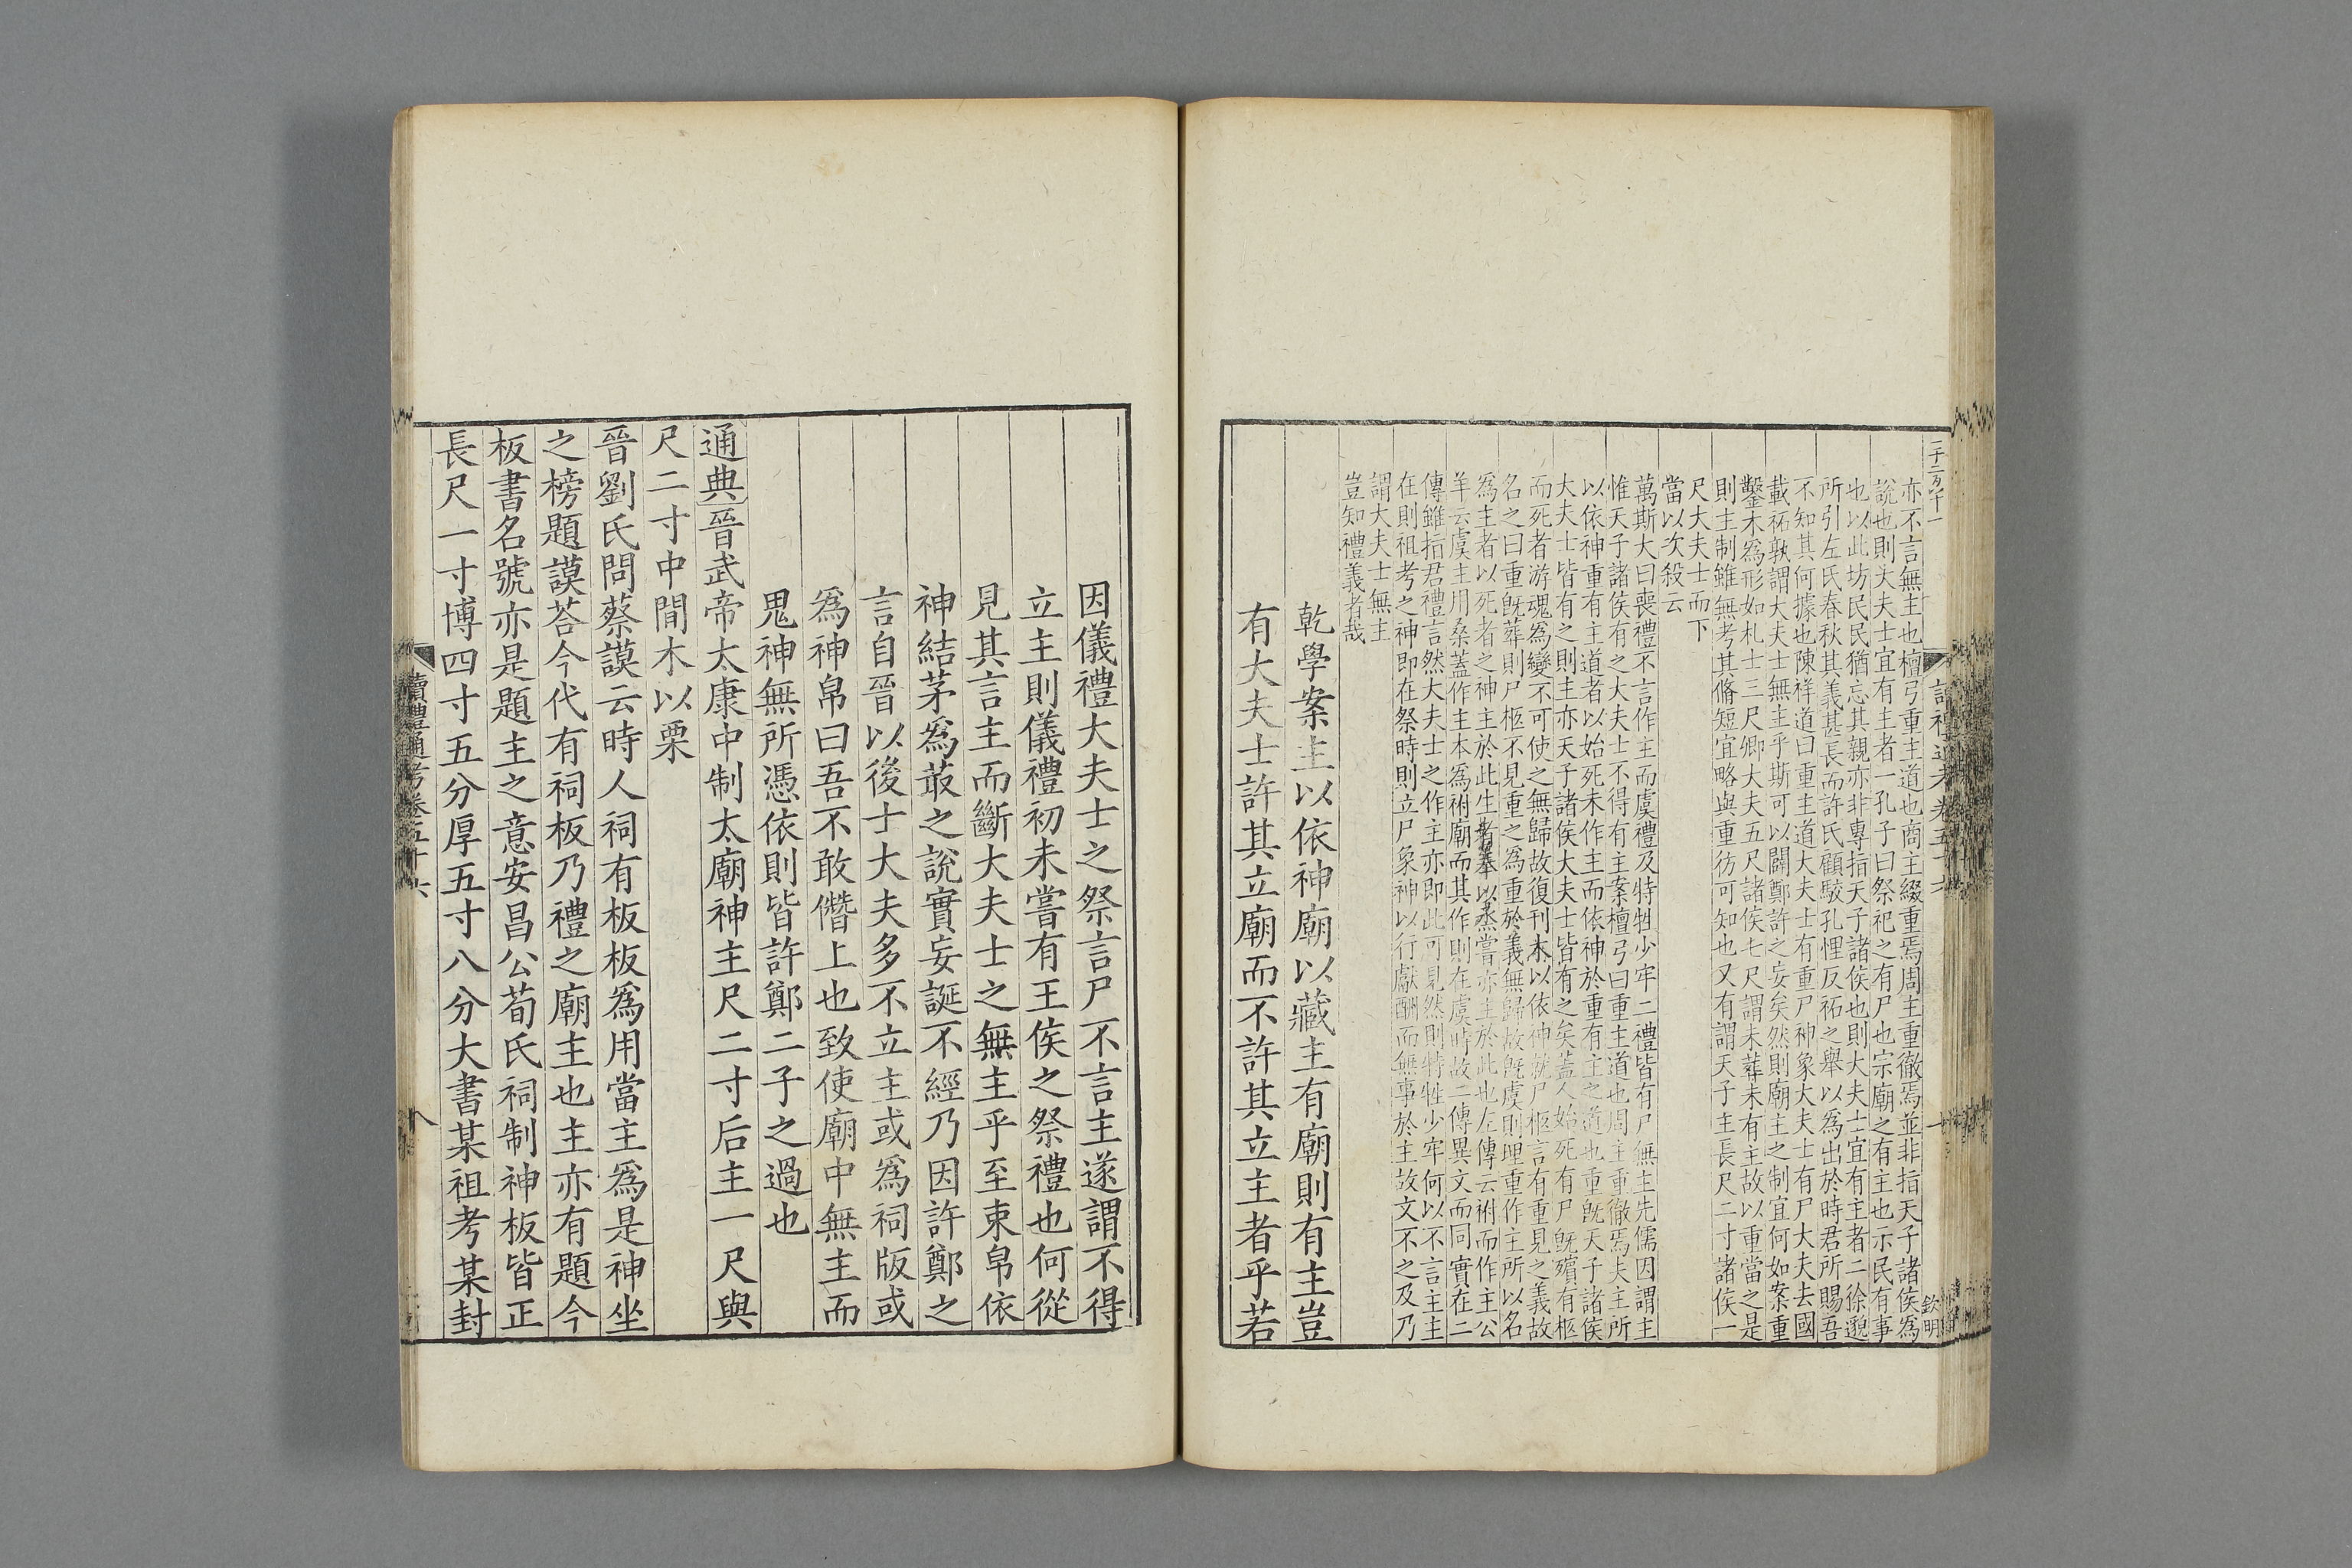 亦不言無主也檀弓重主道也商主綴重焉周主重徹焉並非指天子諸侯爲
說也則大夫士宜有主者一孔子曰祭祀之有尸也宗廟之有主也示民有事
也以此坊民民猶忘其親亦非專指天子諸侯也則大夫士宜有主者二徐邈
所引左氏春秋其義甚長而許氏顧駮孔悝反祏之舉以爲出於時君所賜吾
不知其何據也陳祥道曰重主道大夫士有重尸神象大夫士有尸大夫去國
載祏孰謂大夫士無主乎斯可以闢鄭許之妄矣然則廟主之制宜何如案重
鑿木爲形如札士三尺卿大夫五尺諸侯七尺謂未葬未有主故以重當之是
則主制雖無考其脩短宜略與重彷可知也又有謂天子主長尺二寸諸侯一
尺大夫士而下
當以次殺云
萬斯大曰喪禮不言作主而虞禮及特牲少牢二禮皆有尸無主先儒因謂主
惟天子諸侯有之大夫士不得有主案檀弓曰重主道也周主重徹焉夫主所
以依神重有主道者以始死未作主而依神於重有主之道也重旣天子諸侯
大夫士皆有之則主亦天子諸侯大夫士皆有之矣蓋人始死有尸旣殯有柩
而死者游魂爲變不可使之無歸故復刊木以依神就尸柩言有重見之義故
名之曰重旣葬則尸柩不見重之爲重於義無歸故旣虞則埋重作主所以名
爲主者以死者之神主於此生者奉以烝嘗亦主於此也左傳云祔而作主公
羊云虞主用桑蓋作主本爲祔廟而其作則在虞時故二傳異文而同實在二
傳雖指君禮言然大夫士之作主亦即此可見然則特牲少牢何以不言主主
在則祖考之神即在祭時則立尸象神以行獻酬而無事於主故文不之及乃
謂大夫士無主
豈知禮義者哉
乾學案主以依神廟以藏主有廟則有主豈
有大夫士許其立廟而不許其立主者乎若
因儀禮大夫士之祭言尸不言主遂謂不得
立主則儀禮初未嘗有王侯之祭禮也何從
見其言主而斷大夫士之無主乎至束帛依
神結茅爲菆之說實妄誕不經乃因許鄭之
言自晉以後士大夫多不立主或爲祠版或
爲神帛曰吾不敢僭上也致使廟中無主而
鬼神無所憑依則皆許鄭二子之過也
通典晉武帝太康中制太廟神主尺二寸后主一尺與
尺二寸中間木以栗
晉劉氏問蔡謨云時人祠有板板爲用當主爲是神坐
之榜題謨荅今代有祠板乃禮之廟主也主亦有題今
板書名號亦是題主之意安昌公荀氏祠制神板皆正
長尺一寸博四寸五分厚五寸八分大書某祖考某封
讀禮通考卷五十六
八